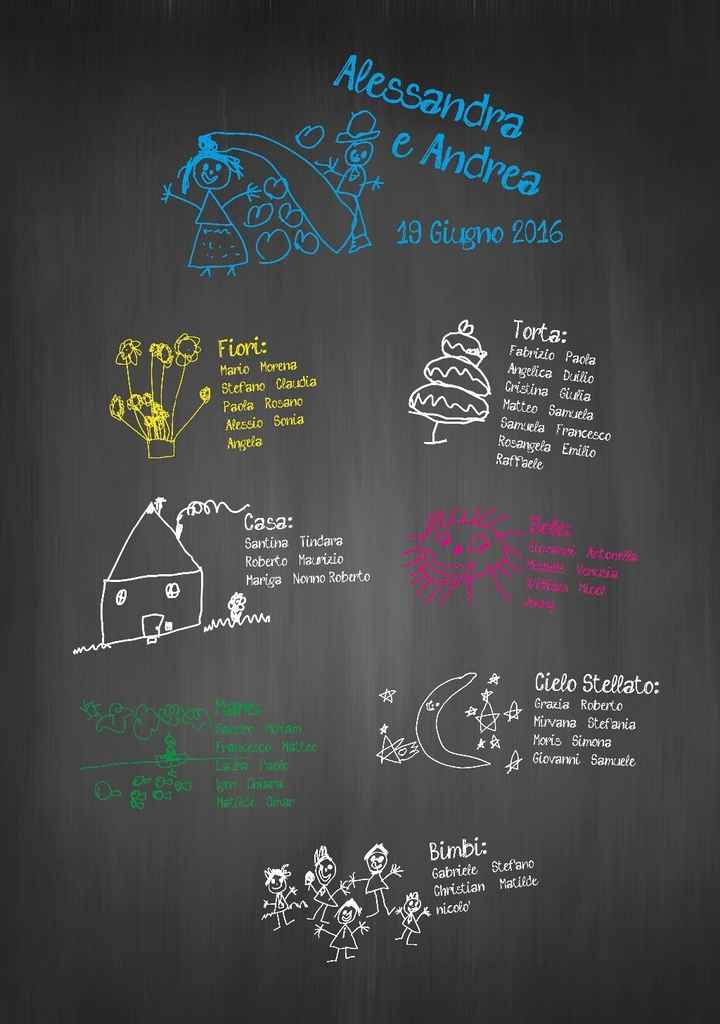 Alessandra
e Andrea
19 Giugno 2016
Fiori:
Mario Morena
Stefano Claudia
Paola Rosano
Alessio Sonia
Angela
Torta:
Fabrizio Paola
Angelica Duilio
Cristina Giulia
Matteo Samuela
Samuela Francesco
Rosangela Emilio
Raffaele
Casa:
Santina Tindara
Roberto Maurizio
Mariga Nonno Roberto
Giovanni Antonella
Venusia
William
Jenny
Cielo Stellato:
Grazia Roberto
Mirvana Stefania
Moris Simona
Giovanni Samuele
Mare:
Miriam
Francesco Matteo
Laura Paolo
Igor Chiara
Matilde Omar
Bimbi:
Gabriele Stefano
Christian Matilde
nicolo'